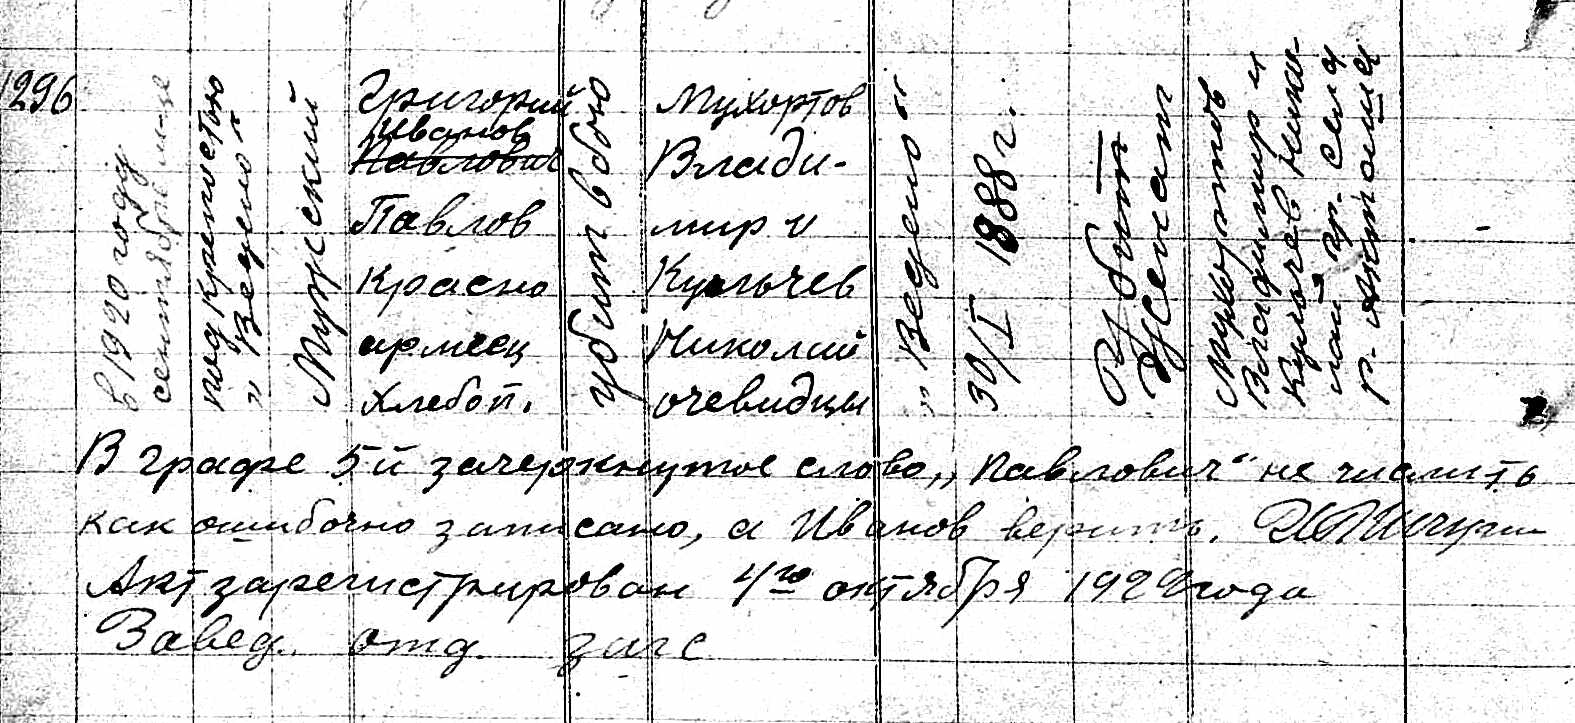 1296
в 1920 году
сентябре м-це
под крепостью
„Ведено“
Мужской
Григорий
Иванов
Павлович
Павлов
Красно
армеец
Хлебоп.
убит в бою
Мухортов
Влади-
мир и
Кульчев
Николай
очевидцы
„Ведено“
30/I 1888 г.
Убит
Женат
Мухортов
Владимир и
Кульчев Нико-
лай гр. села
В графе 5й зачеркнутое слово „Павлович“ не числить
как ошибочно записано, а Иванов верить.
Акт зарегистрирован 4го октября 1922 года
Завед. отд. загс